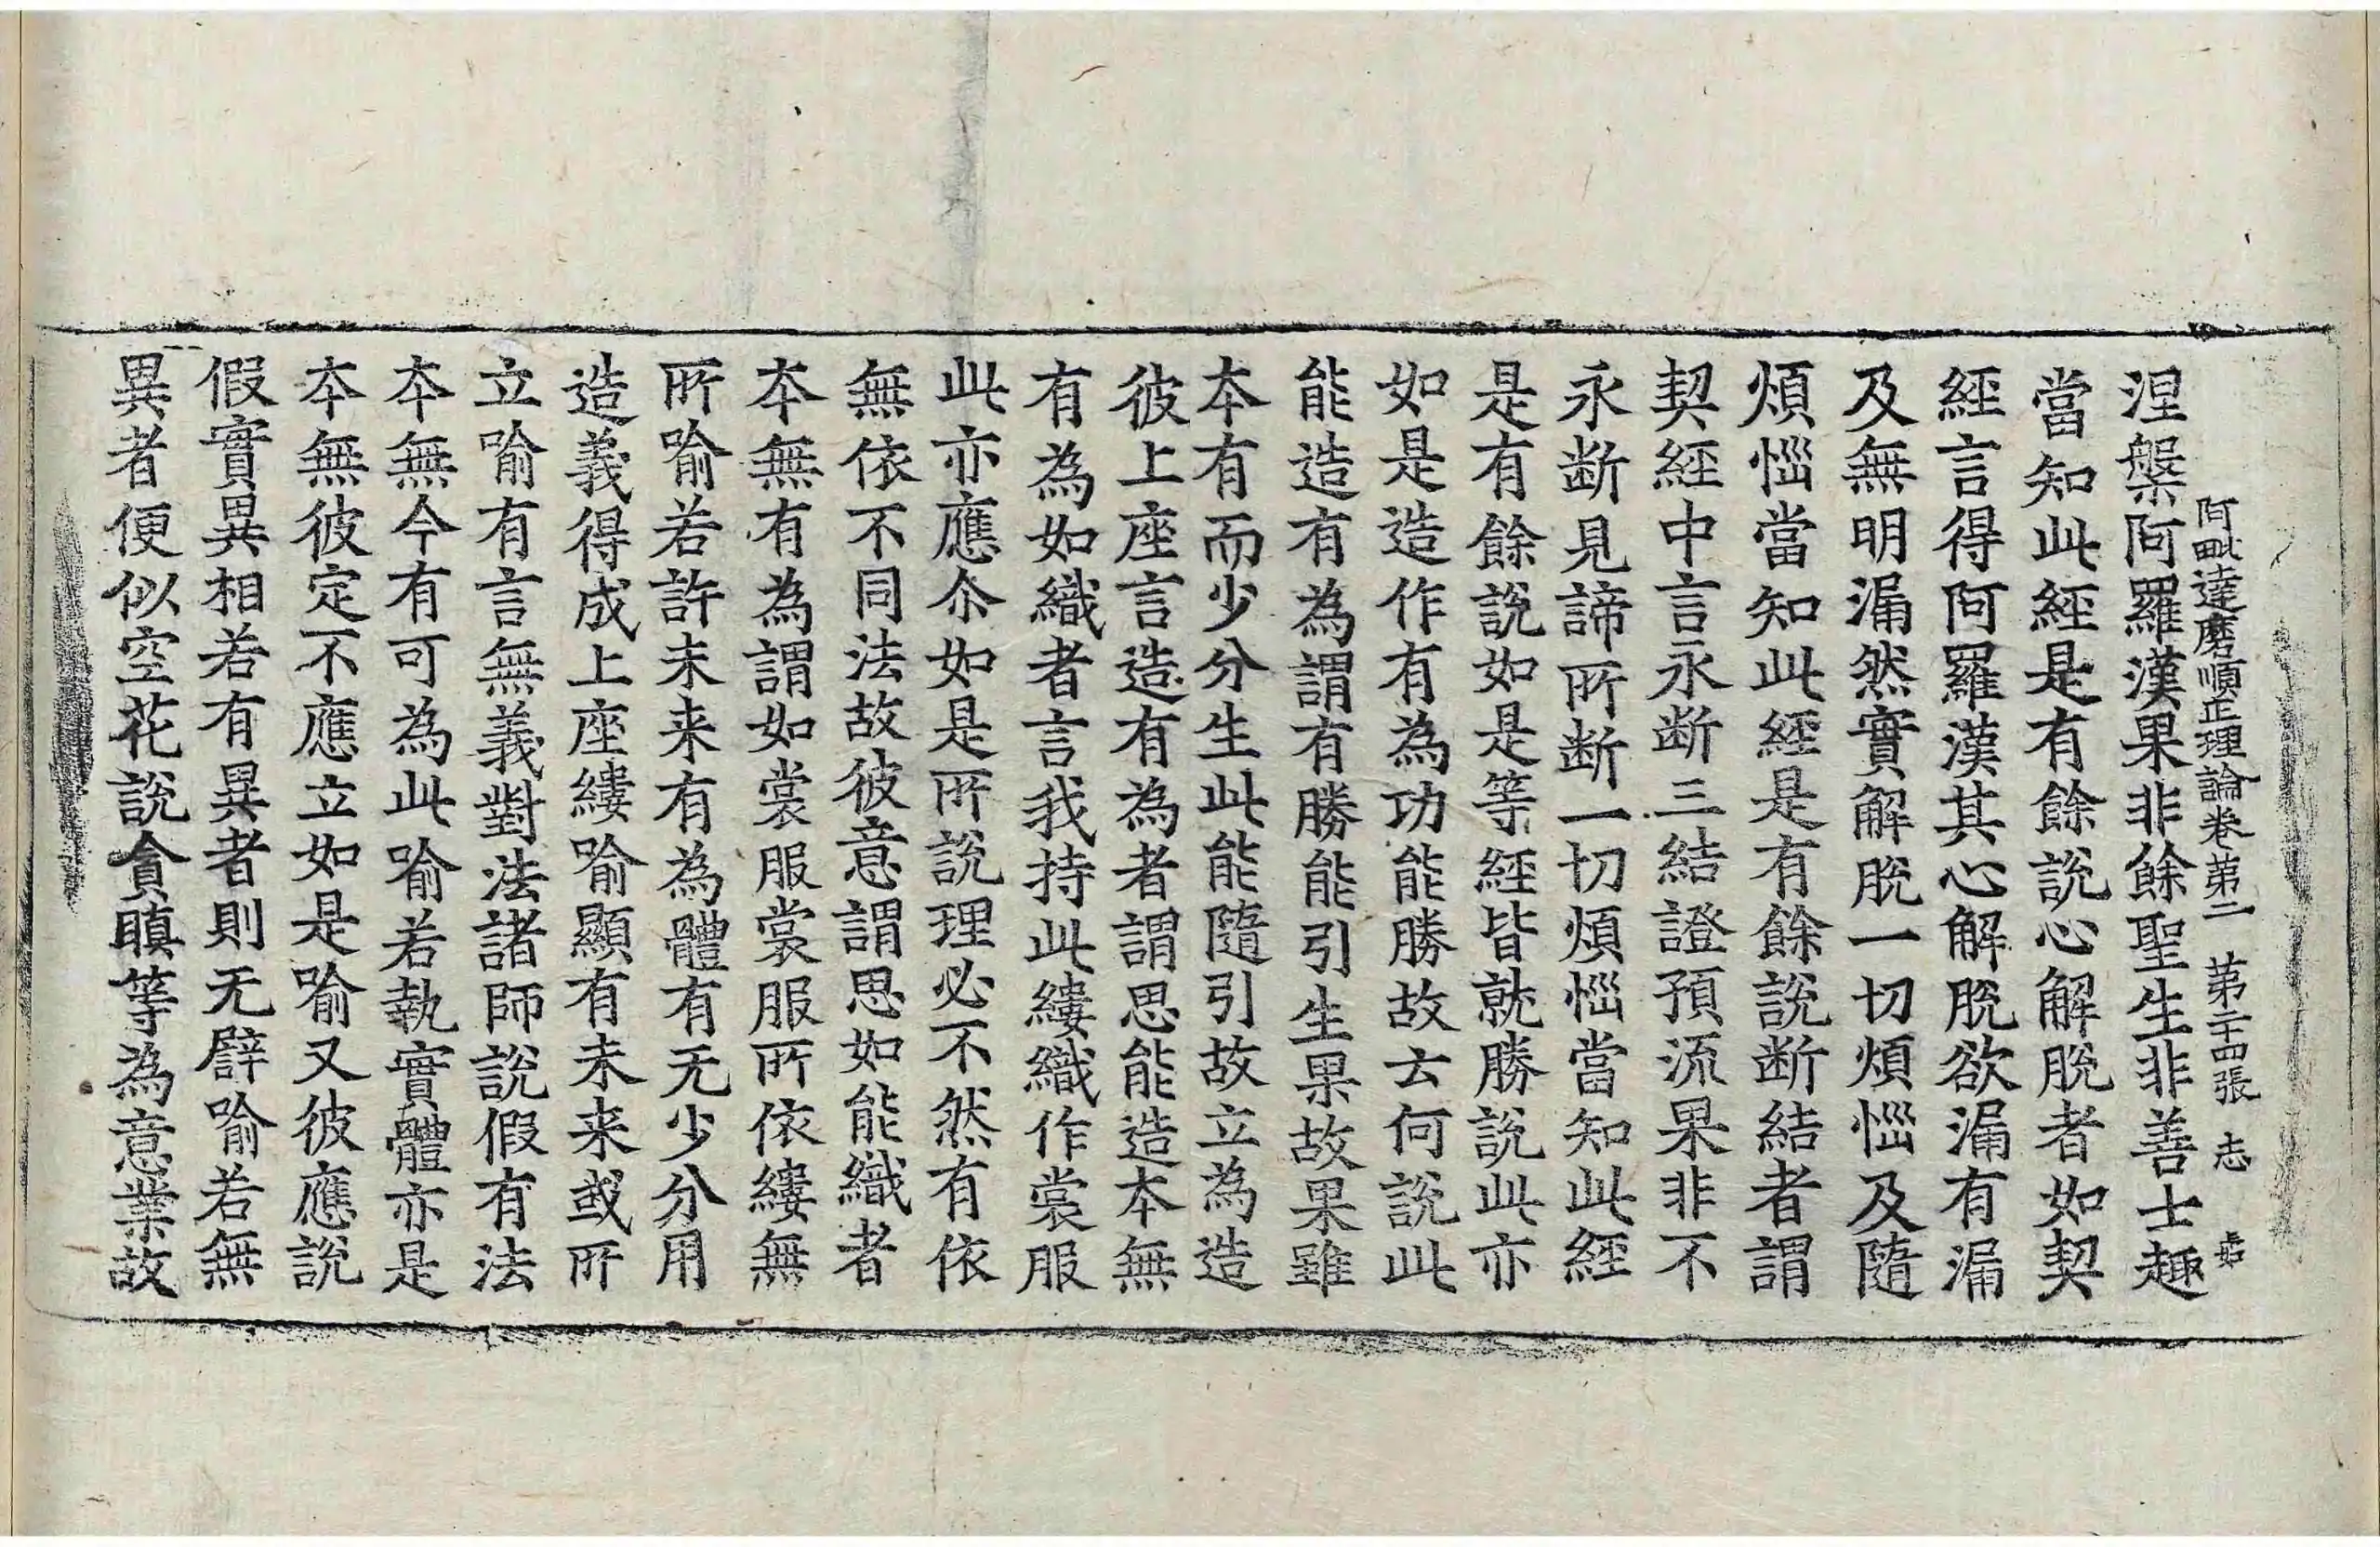 阿毗達磨順正理論卷第二　第二十四張　志
涅槃阿羅漢果非餘聖生非善士趣
當知此經是有餘說心解脫者如契
經言得阿羅漢其心解脫欲漏有漏
及無明漏然實解脫一切煩惱及隨
煩惱當知此經是有餘說断結者謂
契經中言永断三結證預流果非不
永断見諦所断一切煩惱當知此經
是有餘說如是等經皆就勝說此亦
如是造作有為功能勝故去何說此
能造有為謂有勝能引生果故果雖
本有而少分生此能隨引故立為造
彼上座言造有為者謂思能造本無
有為如織者言我持此縷織作裳服
此亦應尒如是所說理必不然有依
無依不同法故彼意謂思如能織者
本無有為謂如裳服裳服所依縷無
所喻若許未来有為體有无少分用
造義得成上座縷喻顯有未来或所
立喻有言無義對法諸師說假有法
本無今有可為此喻若執實體亦是
本無彼定不應立如是喻又彼應說
假實異相若有異者則无譬喻若無
異者便似空花說貪瞋等為意業故